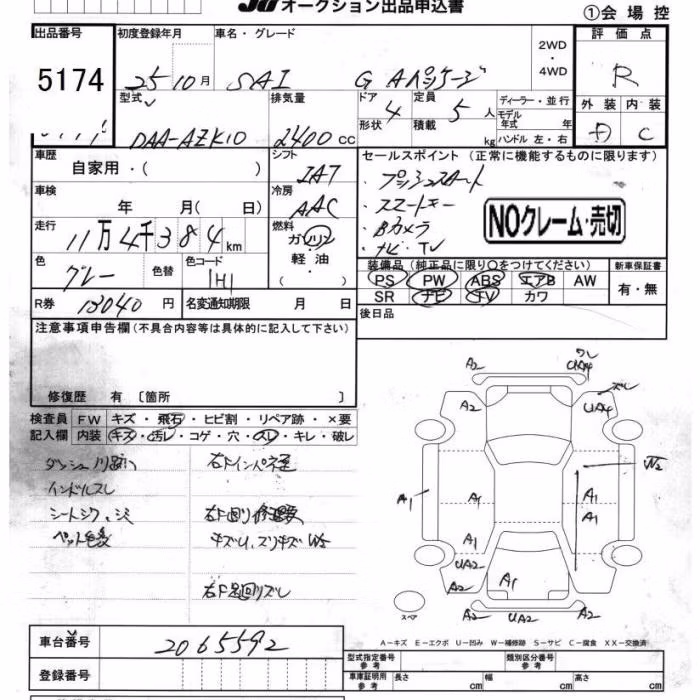 JU オークション出品申込書
①会場控
出品番号 初度登録年月 車名・グレード 2WD・4WD 評価点
5174 25 10月 SAI G Aパッケージ R
型式 排気量 ドア 4 定員 5人 ディーラー・並行 外装 内装
DAA-AZK10 2400cc 形状 積載 kg モデル年式 年 ハンドル 左・右 C
車歴 自家用・( ) シフト IAT セールスポイント (正常に機能するものに限ります)
・プッシュスタート
車検 年 月( 日) 冷房 AAC ・スマートキー
・Bカメラ
・ナビ・TV
NOクレーム・売切
走行 11万4千384km 燃料 ガソリン 軽油・( )
色 グレー 色替 色コード 1H1 装備品 (純正品に限り○をつけてください) 新車保証書
PS PW ABS エアB AW 有・無
SR ナビ TV カワ
R券 13040円 名変通知期限 月 日 後日品
注意事項申告欄(不具合内容等は具体的に記入して下さい)
修復歴 有 〔箇所 〕
検査員 FW キズ・飛石・ヒビ割・リペア跡・×要
記入欄 内装 キズ・汚レ・コゲ・穴・スレ・キレ・破レ
シートシワ、シミ
キズU、スリキズ
右F足回りズレ
A2 UA4
ズレ
A2 UA4
W2
A1 A1 A1
A1 A1
UA2 A1 A2
A2
A2 UA2 A2
スペア
A−キズ E−エクボ U−凹み W−補修跡 S−サビ C−腐食 XX−交換済
車台番号 2065592
登録番号
型式指定番号 参考 類別区分番号 参考
車庫証明用 参考 長さ cm 幅 cm 高さ cm